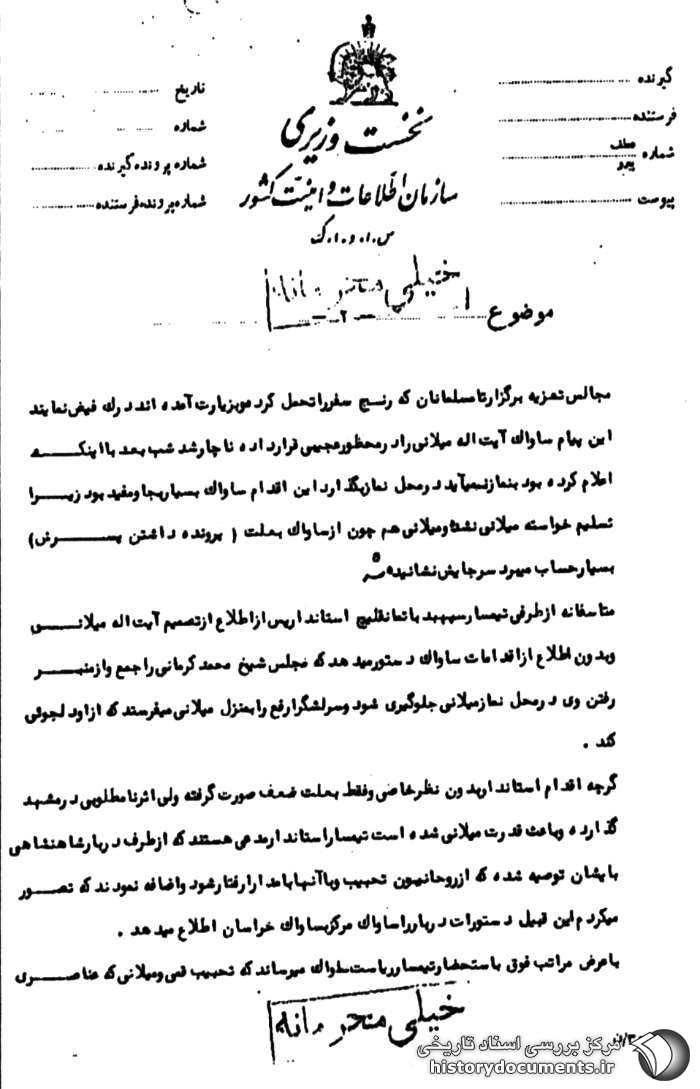 نخست وزیری
سازمان اطلاعات و امنیت کشور
س.ا.و.ا.ک
گیرنده
فرستنده
شماره عطف پیرو
پیوست
تاریخ
شماره
شماره پرونده گیرنده
شماره پرونده فرستنده
خیلی محرمانه
موضوع
-۲-
مجالس تعزیه برگزار تا مسلمانان که رنج سفر را تحمل کرده و بزیارت آمده اند درك فیض نمایند
این پیام ساواك آیت اله میلانی را در محظور عجیبی قرار داده ناچار شد شب بعد با اینکه
اعلام کرده بود بنماز نمیآید در محل نماز بگذارد این اقدام ساواك بسیار بجا و مفید بود زیرا
تسلیم خواسته میلانی نشده و میلانی هم چون از ساواك بعلت ( پرونده داشتن پسرش)
بسیار حساب میبرد سرجایش نشانیده شد
متاسفانه از طرفی تیمسار سپهبد باتمانقلیچ استاندار پس از اطلاع از تصمیم آیت اله میلانی
وبدون اطلاع از اقدامات ساواك دستور میدهد که مجلس شیخ محمد کرمانی را جمع و از منبر
رفتن وی در محل نماز میلانی جلوگیری شود و سرلشگر ارفع را بمنزل میلانی میفرستد که از او دلجوئی
کند .
گرچه اقدام استاندار بدون نظر خاصی و فقط بعلت ضعف صورت گرفته ولی اثر نامطلوبی در مشهد
گذارده وباعث قدرت میلانی شده است تیمسار استاندار مدعی هستند که از طرف دربار شاهنشاهی
بایشان توصیه شده که از روحانیون تحبیب وبا آنها بامدارا رفتار شود واضافه نمودند که تصور
میکردم این قبیل دستورات دربار را ساواك مرکز بساواك خراسان اطلاع میدهد .
باعرض مراتب فوق باستحضار تیمسار ریاست ساواك میرساند که تحبیب قمی و میلانی که عناصری
خیلی محرمانه
مرکز بررسی اسناد تاریخی
historydocuments.ir